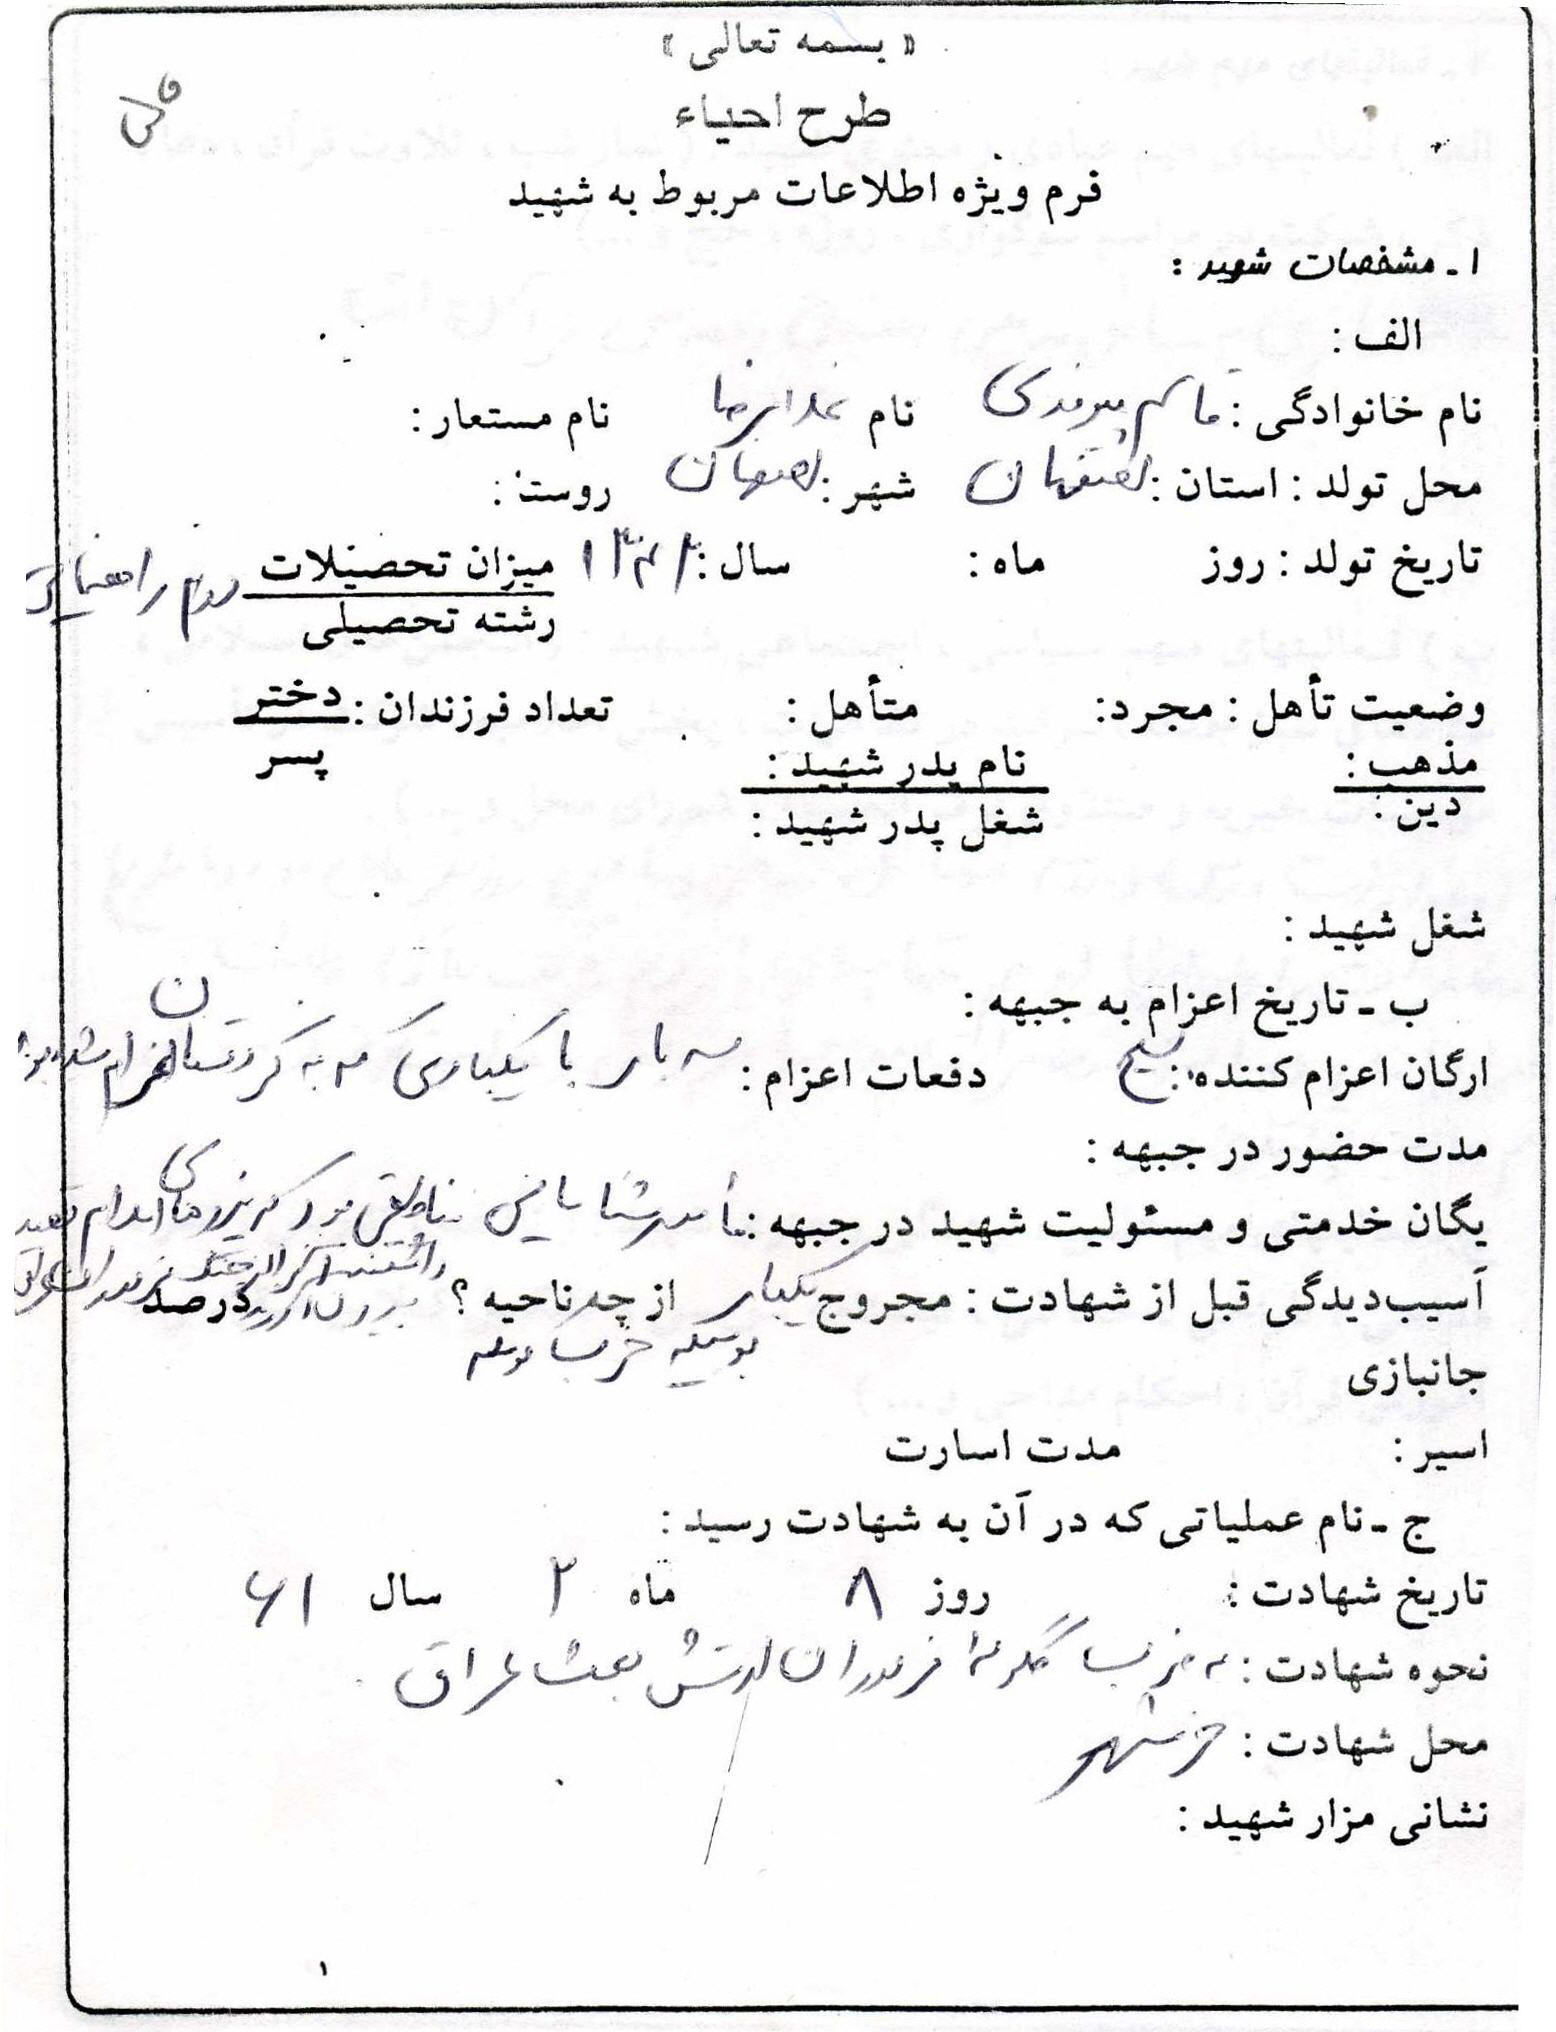 « بسمه تعالی »
طرح احیاء
فرم ویژه اطلاعات مربوط به شهید
۱ - مشخصات شهید :
الف :
نام خانوادگی : نام علیرضا نام مستعار :
محل تولد : استان : اصفهان شهر : اصفهان روستا :
تاریخ تولد : روز ماه : سال : ۱۳۴۲ میزان تحصیلات دوم راهنمایی
رشته تحصیلی
وضعیت تأهل : مجرد : متأهل : تعداد فرزندان : دختر
پسر
مذهب : نام پدر شهید :
دین : شغل پدر شهید :
شغل شهید :
ب - تاریخ اعزام به جبهه :
ارگان اعزام کننده : بسیج دفعات اعزام : سه بار با یکباری که به کردستان اعزام شده بود
مدت حضور در جبهه :
یگان خدمتی و مسئولیت شهید در جبهه : مأمور شناسایی مناطقی بود که نیروهای اسلام قصد
داشتند از چنگ مزدوران عراقی
بیرون آورند
آسیب‌دیدگی قبل از شهادت : مجروح یکبار از چه ناحیه ؟ درصد
بوسیله
جانبازی
اسیر : مدت اسارت
ج - نام عملیاتی که در آن به شهادت رسید :
تاریخ شهادت : روز ۸ ماه ۲ سال ۶۱
نحوه شهادت : به ضرب گلوله مزدوران ارتش بعث عراق
محل شهادت : خرمشهر
نشانی مزار شهید :
۱